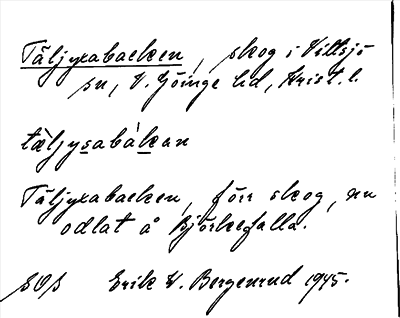 Täljyxabacken, skog i Vittsjö
sn, V. Göinge hd, Krist. l.
tæ̀ljysabàkan
Täljyxabacken, förr skog, nu
odlat å Björkefalla.
SOS Erik W. Bergenrud 1945.